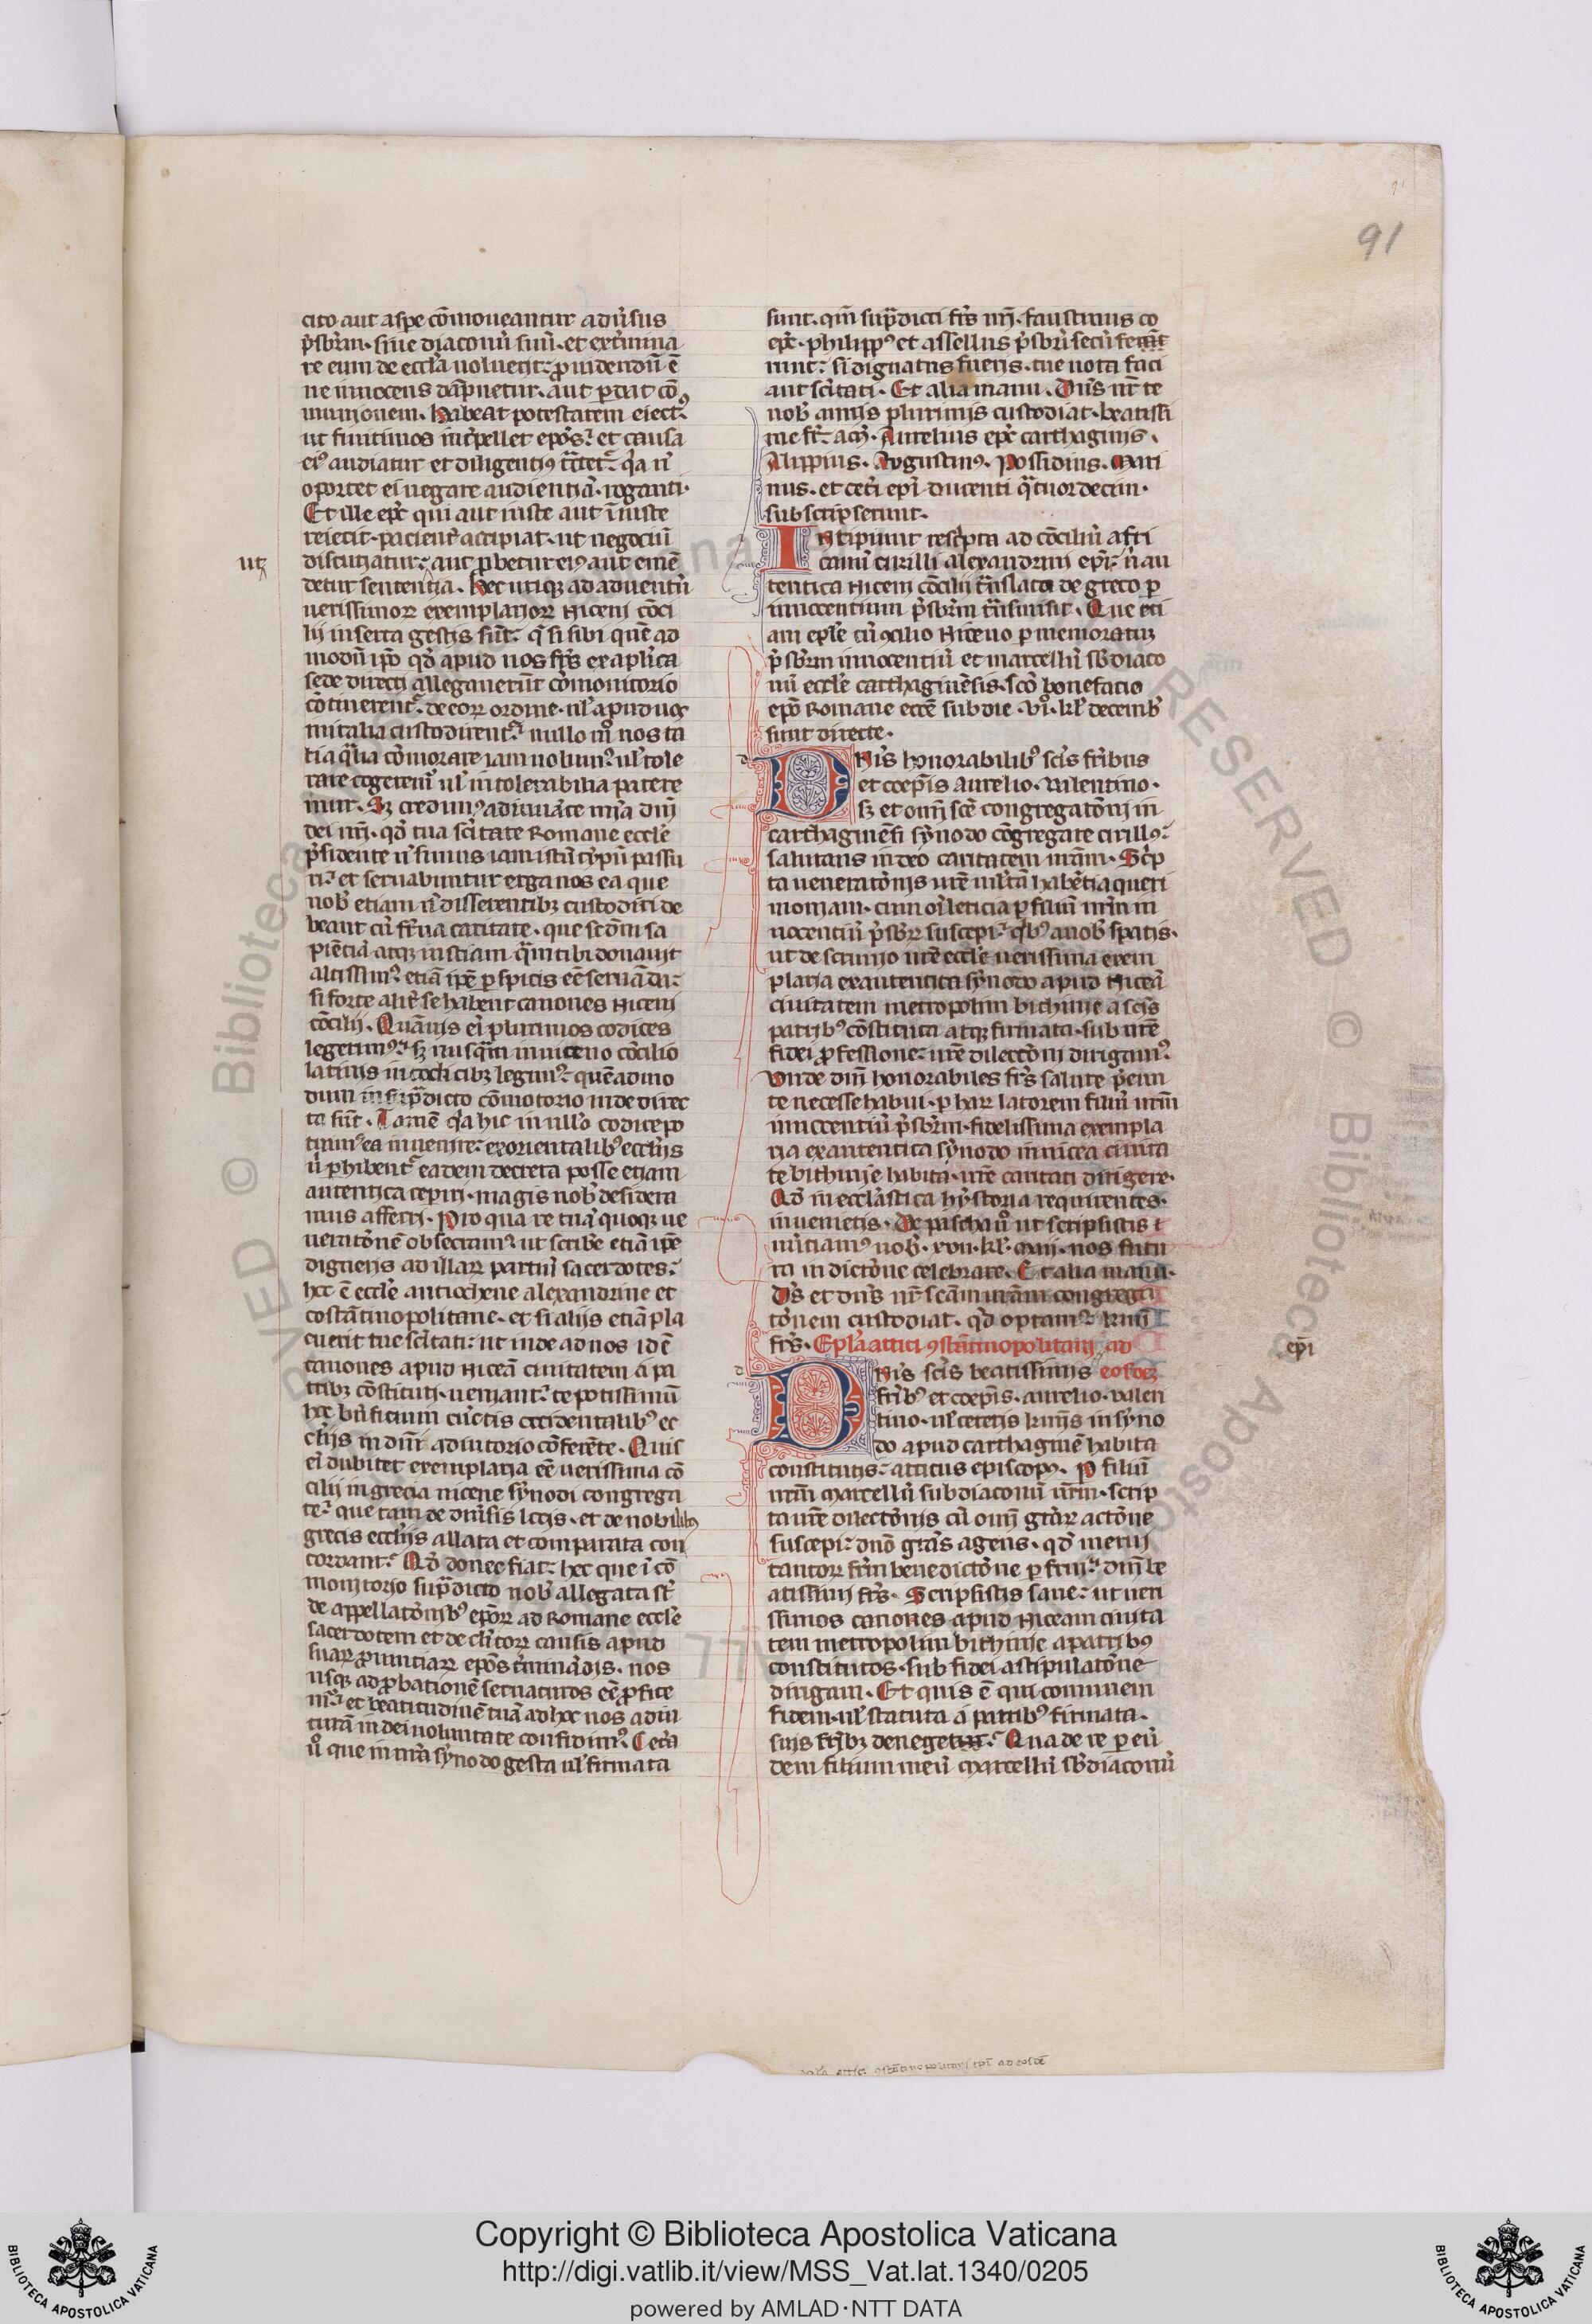 91
cito aut aspe cōmoueantur adūsus
p̄sbr̄m· siue diaconū suū· et extmina
re eum de eccl̄a uoluerit: ꝓuidendū ē
ne innocens dāpnetur· aut ꝑdat cō
munionem. habeat potestatem eiectꝰ
ut finitimos int̄pellet ep̄os: et causa
eiꝰ audiatur et diligentiꝰ t̄ctet: q̄a n̄
oportet ei negare audientiā· roganti·
Et ille ep̄c qui aut iuste aut īiuste
reiecit· pacient̄ accipiat· ut negociū
ut
discutiatur: aut ꝓbetur eiꝰ aut emē
detur sententia. hec utiqꝫ ad aduentū
uerissimoꝝ exemplarioꝝ Niceni cōci
lii inserta gestis sūt: q̄ si sibi quē ad
modū ip̄o qd̄ apud nos fr̄s ex apl̄ica
sede directi allegauerūt cōmonitorio
cōtinerent̄· de eoꝝ ordine· ul̄ apud uos
in italia custodirent̄: nullo mō nos ta
lia q̄lia cōmorare iam nolumꝰ ul̄ tole
rare cogeremꝰ ul̄ intolerabilia patere
mur. Sꝫ credimꝰ adiuuāte mīa dn̄i
dei nr̄i· qd̄ tua sc̄itate Romane eccl̄e
p̄sidente n̄ simus iam istū typū passu
ri: et seruabuntur erga nos ea que
nob̄ etiam n̄ disserentibꝫ custodiri de
beant cū fr̄na caritate· que scd̄m sa
piētiā atqꝫ iustiam q̄m tibi donauit
altissimꝰ etiā ip̄e ꝑspicis eē seruāda:
si forte alit̄ se habent canones Niceni
cōcilii. Quāuis ei plurimos codices
legerimꝰ: sꝫ nusq̄m in niceno cōcilio
latinis in codicibꝫ legimꝰ: quēadmo
dum in sup̄dicto cōmotorio inde direc
ta sūt. Tamē q̄a hic in ullo codice po
tuimꝰ ea inuenire: ex orientalibꝰ eccl̄iis
ū ꝑhibent̄ eadem decreta posse etiam
autentica reperi· magis nob̄ desidera
mus afferri. Pro qua re tuā quoqꝫ ue
neratōnē obsecramꝰ ut scribe etiā ip̄e
digneris ad illaꝝ partiū sacerdotes:
hoc ē eccl̄e antiochene alexandrine et
costātinopolitane· et si aliis etiā pla
cuerit tue sc̄itati: ut inde ad nos idē
canones apud Niceā ciuitatem a pa
tribꝫ cōstituti· ueniant: te potissimū
hoc bn̄ficium cūctis occidentalibꝰ ec
cl̄iis in dn̄i adiutorio cōferēte. Quis
ei dubitet exemplaria eē uerissima cō
cilii in grecia nicene synodi congrega
te: que tam de diūsis locis· et de nobilibꝰ
grecis eccl̄iis allata et comparata con
cordant: Qd̄ donec fiat: hec que ī cō
monitorio sup̄dicto nob̄ allegata sūt
de appellatōnibꝰ ep̄oꝝ ad Romane eccl̄e
sacerdotem et de cl̄icoꝝ causis apud
suaꝝ ꝓuinciaꝝ ep̄os t̄minādis· nos
usqꝫ ad ꝓbationē seruaturos eē ꝓfite
mꝰ: et beatitudinē tuā ad hoc nos adiu
turā in dei uoluntate confidimꝰ. Cet̄a
ū que in nr̄a synodo gesta ul̄ firmata
sunt· qm̄ sup̄dicti fr̄s nr̄i· faustinus co
ep̄c· philippꝰ et assellus p̄sbr̄i secū ferūt
nunt: si dignatus fueris· tue nota faci
aut sc̄itati. Et alia manu. Dn̄s nr̄ te
nob̄ annis plurimis custodiat· beatissi
me fr̄· acy· Aurelius ep̄c carthaginis.
Alippius. Augustinꝰ. Possidius. Mari
nus· et cet̄i ep̄i ducenti q̄tuordecim·
subscripserunt.
INcipiunt resc̄pta ad cōciliū afri
canū cirilli alexandrini ep̄i: ū au
tentica Niceni cōcilii t̄nslata de greco ꝑ
innocentium p̄sbr̄m t̄nsmisit. Que eti
am ep̄le cū ꝯcilio Niceno ꝑ memoratū
p̄sbr̄m innocentiū et marcellū sb̄diaco
nū eccl̄e carthaginēsis· sc̄o bonefacio
ep̄o Romane eccl̄e sub die· vi̊· kl̄ decemb̄
sunt directe.
DNis honorabilibꝰ sc̄is fr̄ibus
et coep̄is aurelio· valentino·
sꝫ et om̄i sc̄e congregatōni in
carthaginēsi synodo cōgregate cirillꝰ:
salutans in deo caritatem ur̄am. Sc̄ip
ta ueneratōnis ur̄e m̄ltā habētia queri
moniam· cum oī leticia ꝑ filiū nr̄m in
nocentiū p̄sbr̄ꝝ suscepi: q̄bꝰ a nob̄ speratis·
ut de scrinio nr̄e eccl̄e uerissima exem
plaria ex autentica synodo apud Niceā
ciuitatem metropolim bithinie a sc̄is
patribꝰ cōstituta atqꝫ firmata· sub nr̄e
fidei ꝓfessione: ur̄e dilectōni dirigamꝰ.
Vnde dn̄i honorabiles fr̄s salute p̄eun
te necesse habui· ꝑ haꝝ latorem filiū nr̄m
innocentiū p̄sbr̄m· fidelissima exempla
ria ex autentica synodo in nicea ciuita
te bithinie habita· ur̄e caritati dirigere·
Qd̄ in eccl̄astica hystoria requirentes·
inuenietis. De pascha ū ut scripsistis ī
nūtiamꝰ uob̄· xvii· kl̄· maii· nos futu
ra indictōne celebrare. Et alia manu·
Ds̄ et dn̄s nr̄ sc̄am uir̄am congrega
tōnem custodiat· qd̄ optamꝰ kmi
fr̄s. Epl̄a attici ꝯstātinopolitani ad
ep̄i
DNis sc̄is beatissimis eosdeꝫ
fr̄ibꝰ et coep̄is· aurelio· valen
tino· ul̄ ceteris kmis in syno
do apud carthaginē habita
constitutis: atticus episcopꝰ. P filiū
nr̄m marcellū subdiaconū ur̄m· scrip
ta ur̄e dilectōnis cū om̄i gr̄aꝝ actōne
suscepi: dn̄o gr̄as agens· qd̄ merui
tantoꝝ fr̄m benedictōne ꝑfrui: dn̄i be
atissimi fr̄s. Scripsistis sane: ut ueri
ssimos canones apud Niceam ciuita
tem metropolim bithinie a patribꝰ
constitutos· sub fidei astipulatōne
dirigam. Et quis ē qui comunem
fidem· ul̄ statuta a patribꝰ firmata·
suis fr̄ibꝫ deneget: Qua de re ꝑ eū
dem filium meū marcellū sb̄diaconū
attici ꝯstātinopolitani ep̄i ad eosdē
Copyright © Biblioteca Apostolica Vaticana
http://digi.vatlib.it/view/MSS_Vat.lat.1340/0205
powered by AMLAD·NTT DATA
BIBLIOTECA APOSTOLICA VATICANA
BIBLIOTECA APOSTOLICA VATICANA